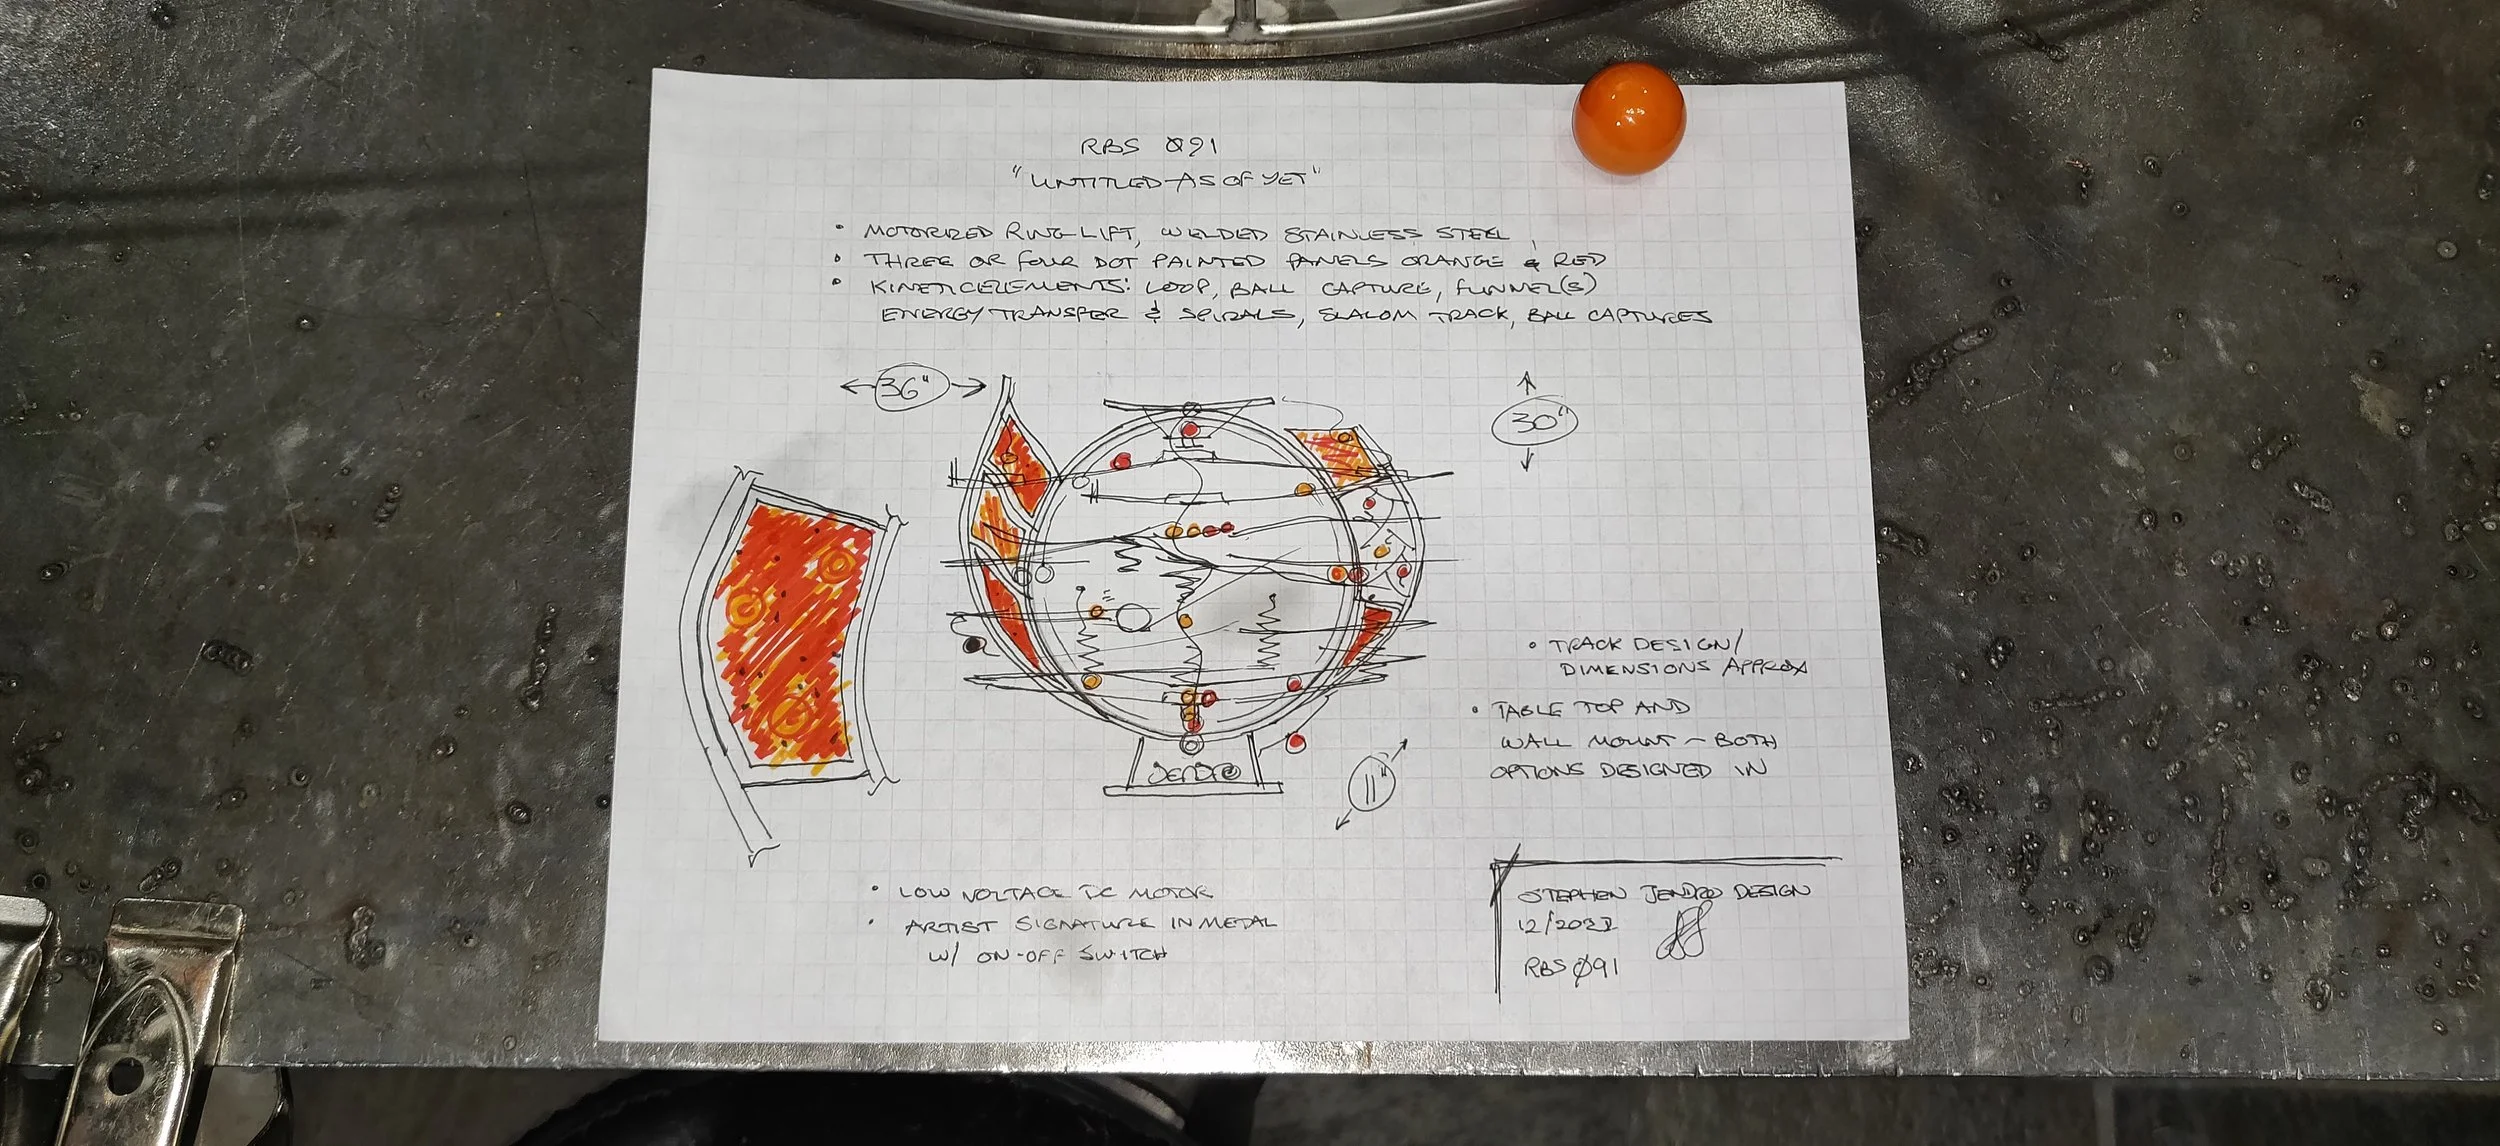 RBS 091
"UNTITLED-AS OF YET"
• MOTORIZED RING LIFT, WELDED STAINLESS STEEL
• THREE OR FOUR DOT PAINTED PANELS ORANGE & RED
• KINETIC ELEMENTS: LOOP, BALL CAPTURE, FUNNEL(S)
ENERGY TRANSFER & SPIRALS, SLALOM TRACK, BALL CAPTURES
36"
30"
• TRACK DESIGN/
DIMENSIONS APPROX
• TABLE TOP AND
WALL MOUNT - BOTH
OPTIONS DESIGNED IN
JENDRO
11"
• LOW VOLTAGE DC MOTOR
• ARTIST SIGNATURE IN METAL
W/ ON-OFF SWITCH
STEPHEN JENDRO DESIGN
RBS 091